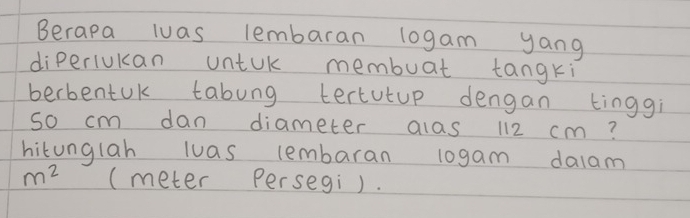 Berapa luas lembaran logam yang
diperlukan untuk membuat tangki
berbentuk tabung tertutup dengan tinggi
50 cm dan diameter alas 112 cm ?
hitunglah luas lembaran logam dalam
m² (meter Persegi).